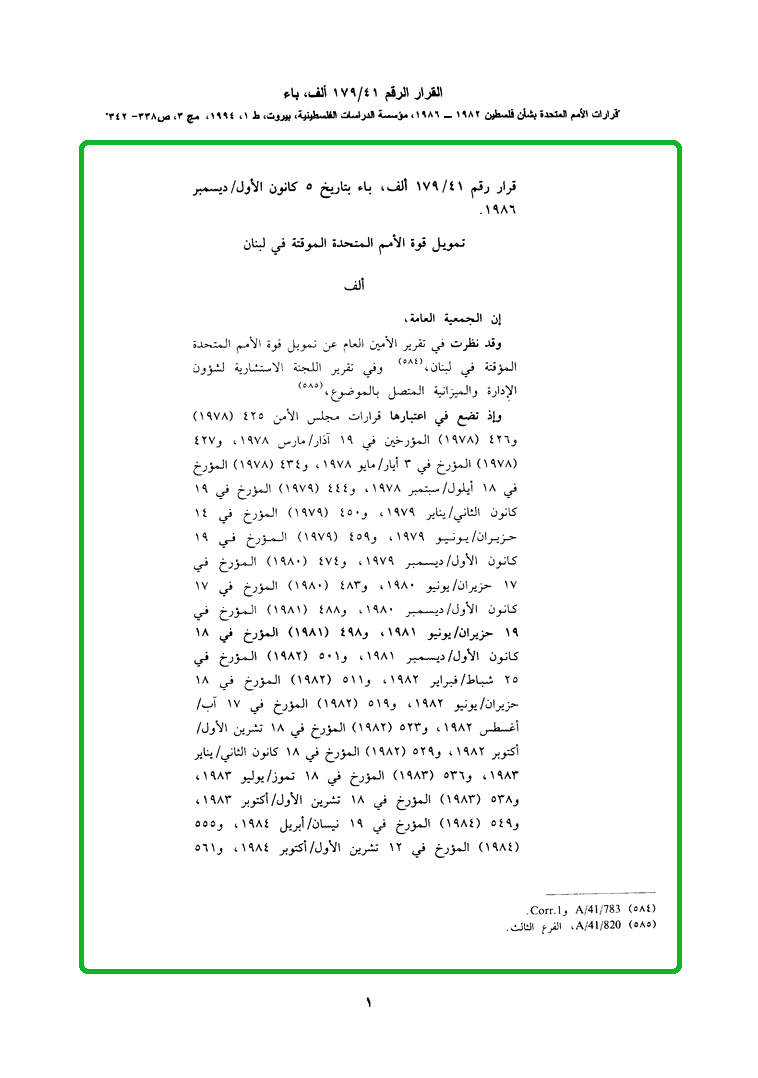 القرار الرقم ١٧٩/٤١ ألف، باء
"قرارات الأمم المتحدة بشأن فلسطين ١٩٨٢ ــ ١٩٨٦، مؤسسة الدراسات الفلسطينية، بيروت، ط ١، ١٩٩٤، مج ٣، ص٣٣٨- ٣٤٢"
قرار رقم ١٧٩/٤١ ألف، باء بتاريخ ٥ كانون الأول/ديسمبر
١٩٨٦.
تمويل قوة الأمم المتحدة الموقتة في لبنان
ألف
إن الجمعية العامة،
وقد نظرت في تقرير الأمين العام عن تمويل قوة الأمم المتحدة
المؤقتة في لبنان،(٥٨٤) وفي تقرير اللجنة الاستشارية لشؤون
الإدارة والميزانية المتصل بالموضوع،(٥٨٥)
وإذ تضع في اعتبارها قرارات مجلس الأمن ٤٢٥ (١٩٧٨)
و٤٢٦ (١٩٧٨) المؤرخين في ١٩ آذار/مارس ١٩٧٨، و٤٢٧
(١٩٧٨) المؤرخ في ٣ أيار/مايو ١٩٧٨، و٤٣٤ (١٩٧٨) المؤرخ
في ١٨ أيلول/سبتمبر ١٩٧٨، و٤٤٤ (١٩٧٩) المؤرخ في ١٩
كانون الثاني/يناير ١٩٧٩، و٤٥٠ (١٩٧٩) المؤرخ في ١٤
حزيران/يونيو ١٩٧٩، و٤٥٩ (١٩٧٩) المؤرخ في ١٩
كانون الأول/ديسمبر ١٩٧٩، و٤٧٤ (١٩٨٠) المؤرخ في
١٧ حزيران/يونيو ١٩٨٠، و٤٨٣ (١٩٨٠) المؤرخ في ١٧
كانون الأول/ديسمبر ١٩٨٠، و٤٨٨ (١٩٨١) المؤرخ في
١٩ حزيران/يونيو ١٩٨١، و٤٩٨ (١٩٨١) المؤرخ في ١٨
كانون الأول/ديسمبر ١٩٨١، و٥٠١ (١٩٨٢) المؤرخ في
٢٥ شباط/فبراير ١٩٨٢، و٥١١ (١٩٨٢) المؤرخ في ١٨
حزيران/يونيو ١٩٨٢، و٥١٩ (١٩٨٢) المؤرخ في ١٧ آب/
أغسطس ١٩٨٢، و٥٢٣ (١٩٨٢) المؤرخ في ١٨ تشرين الأول/
أكتوبر ١٩٨٢، و٥٢٩ (١٩٨٢) المؤرخ في ١٨ كانون الثاني/يناير
١٩٨٣، و٥٣٦ (١٩٨٣) المؤرخ في ١٨ تموز/يوليو ١٩٨٣،
و٥٣٨ (١٩٨٣) المؤرخ في ١٨ تشرين الأول/أكتوبر ١٩٨٣،
و٥٤٩ (١٩٨٤) المؤرخ في ١٩ نيسان/أبريل ١٩٨٤، و٥٥٥
(١٩٨٤) المؤرخ في ١٢ تشرين الأول/أكتوبر ١٩٨٤، و٥٦١
(٥٨٤) A/41/783 وCorr.1.
(٥٨٥) A/41/820، الفرع الثالث.
١